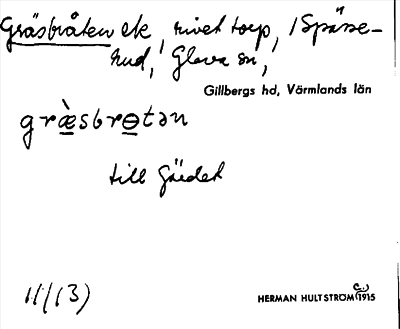 Gräsbråten ek, rivet torp, i Spässe-
rud, Glava sn,
Gillbergs hd, Värmlands län
græ̀sbrɵtən
till Gärdet
11/(3)
HERMAN HULTSTRÖM (c. 1915